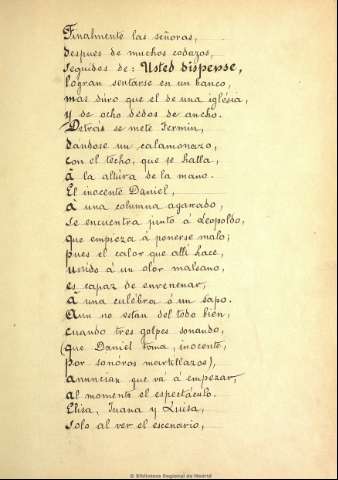 Finalmente las señoras,
despues de muchos codazos,
seguidos de: Usted dispense,
logran sentarse en un banco,
mas dúro que el de una iglésia,
y de ocho dedos de ancho.
Detrás se mete Fermin,
dandose un calamonazo,
con el techo, que se halla,
á la altúra de la mano.
El inocente Daniel,
á una columna agarrado,
se encuentra junto á Leopoldo,
que empieza á ponerse malo;
pues el calor que allí hace,
unido á un olor malsano,
es capaz de envenenar,
á una culébra ó un sapo.
Aun no estan del todo bien,
cuando tres golpes sonando,
(que Daniel toma, inocente,
por sonóros martillazos),
anuncian que vá á empezar,
al momento el espectáculo.
Elisa, Juana y Luisa,
solo al ver el escenario,
© Biblioteca Regional de Madrid